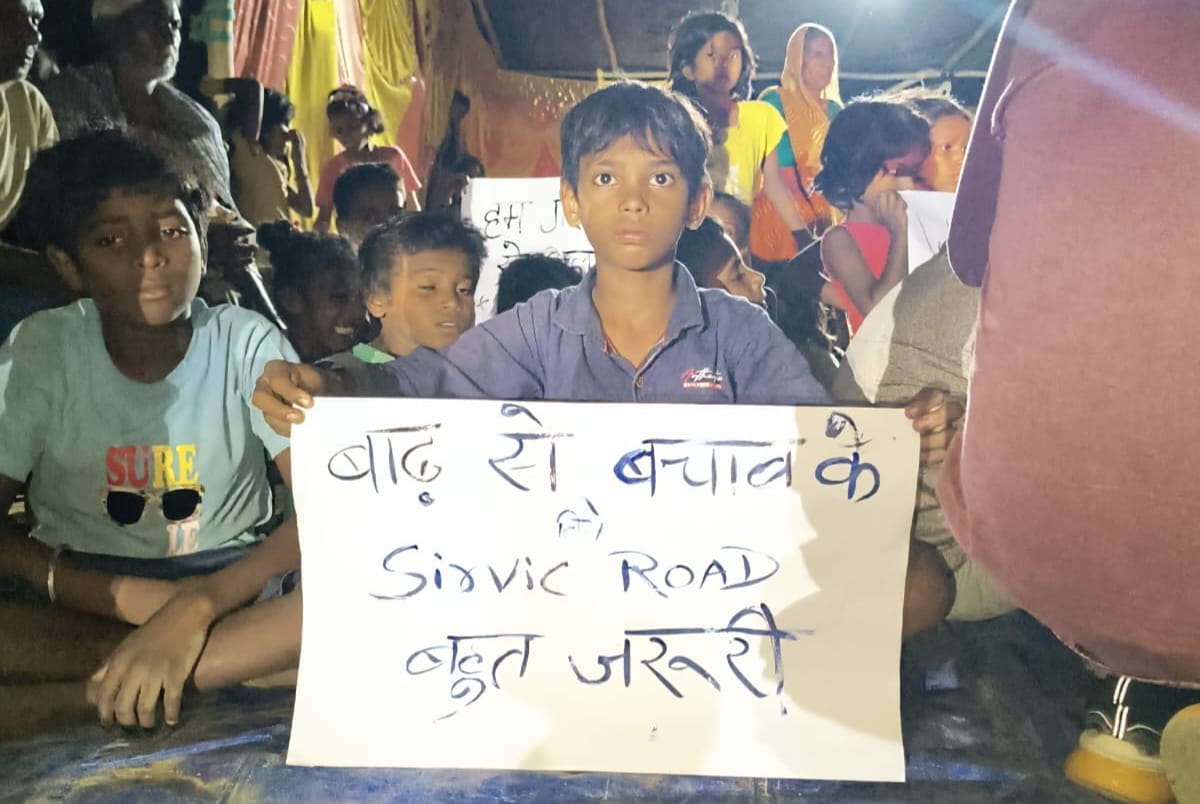 हम
बाढ़ से बचाव के
लिये
Sirvic ROAD
बहुत जरूरी
SURE